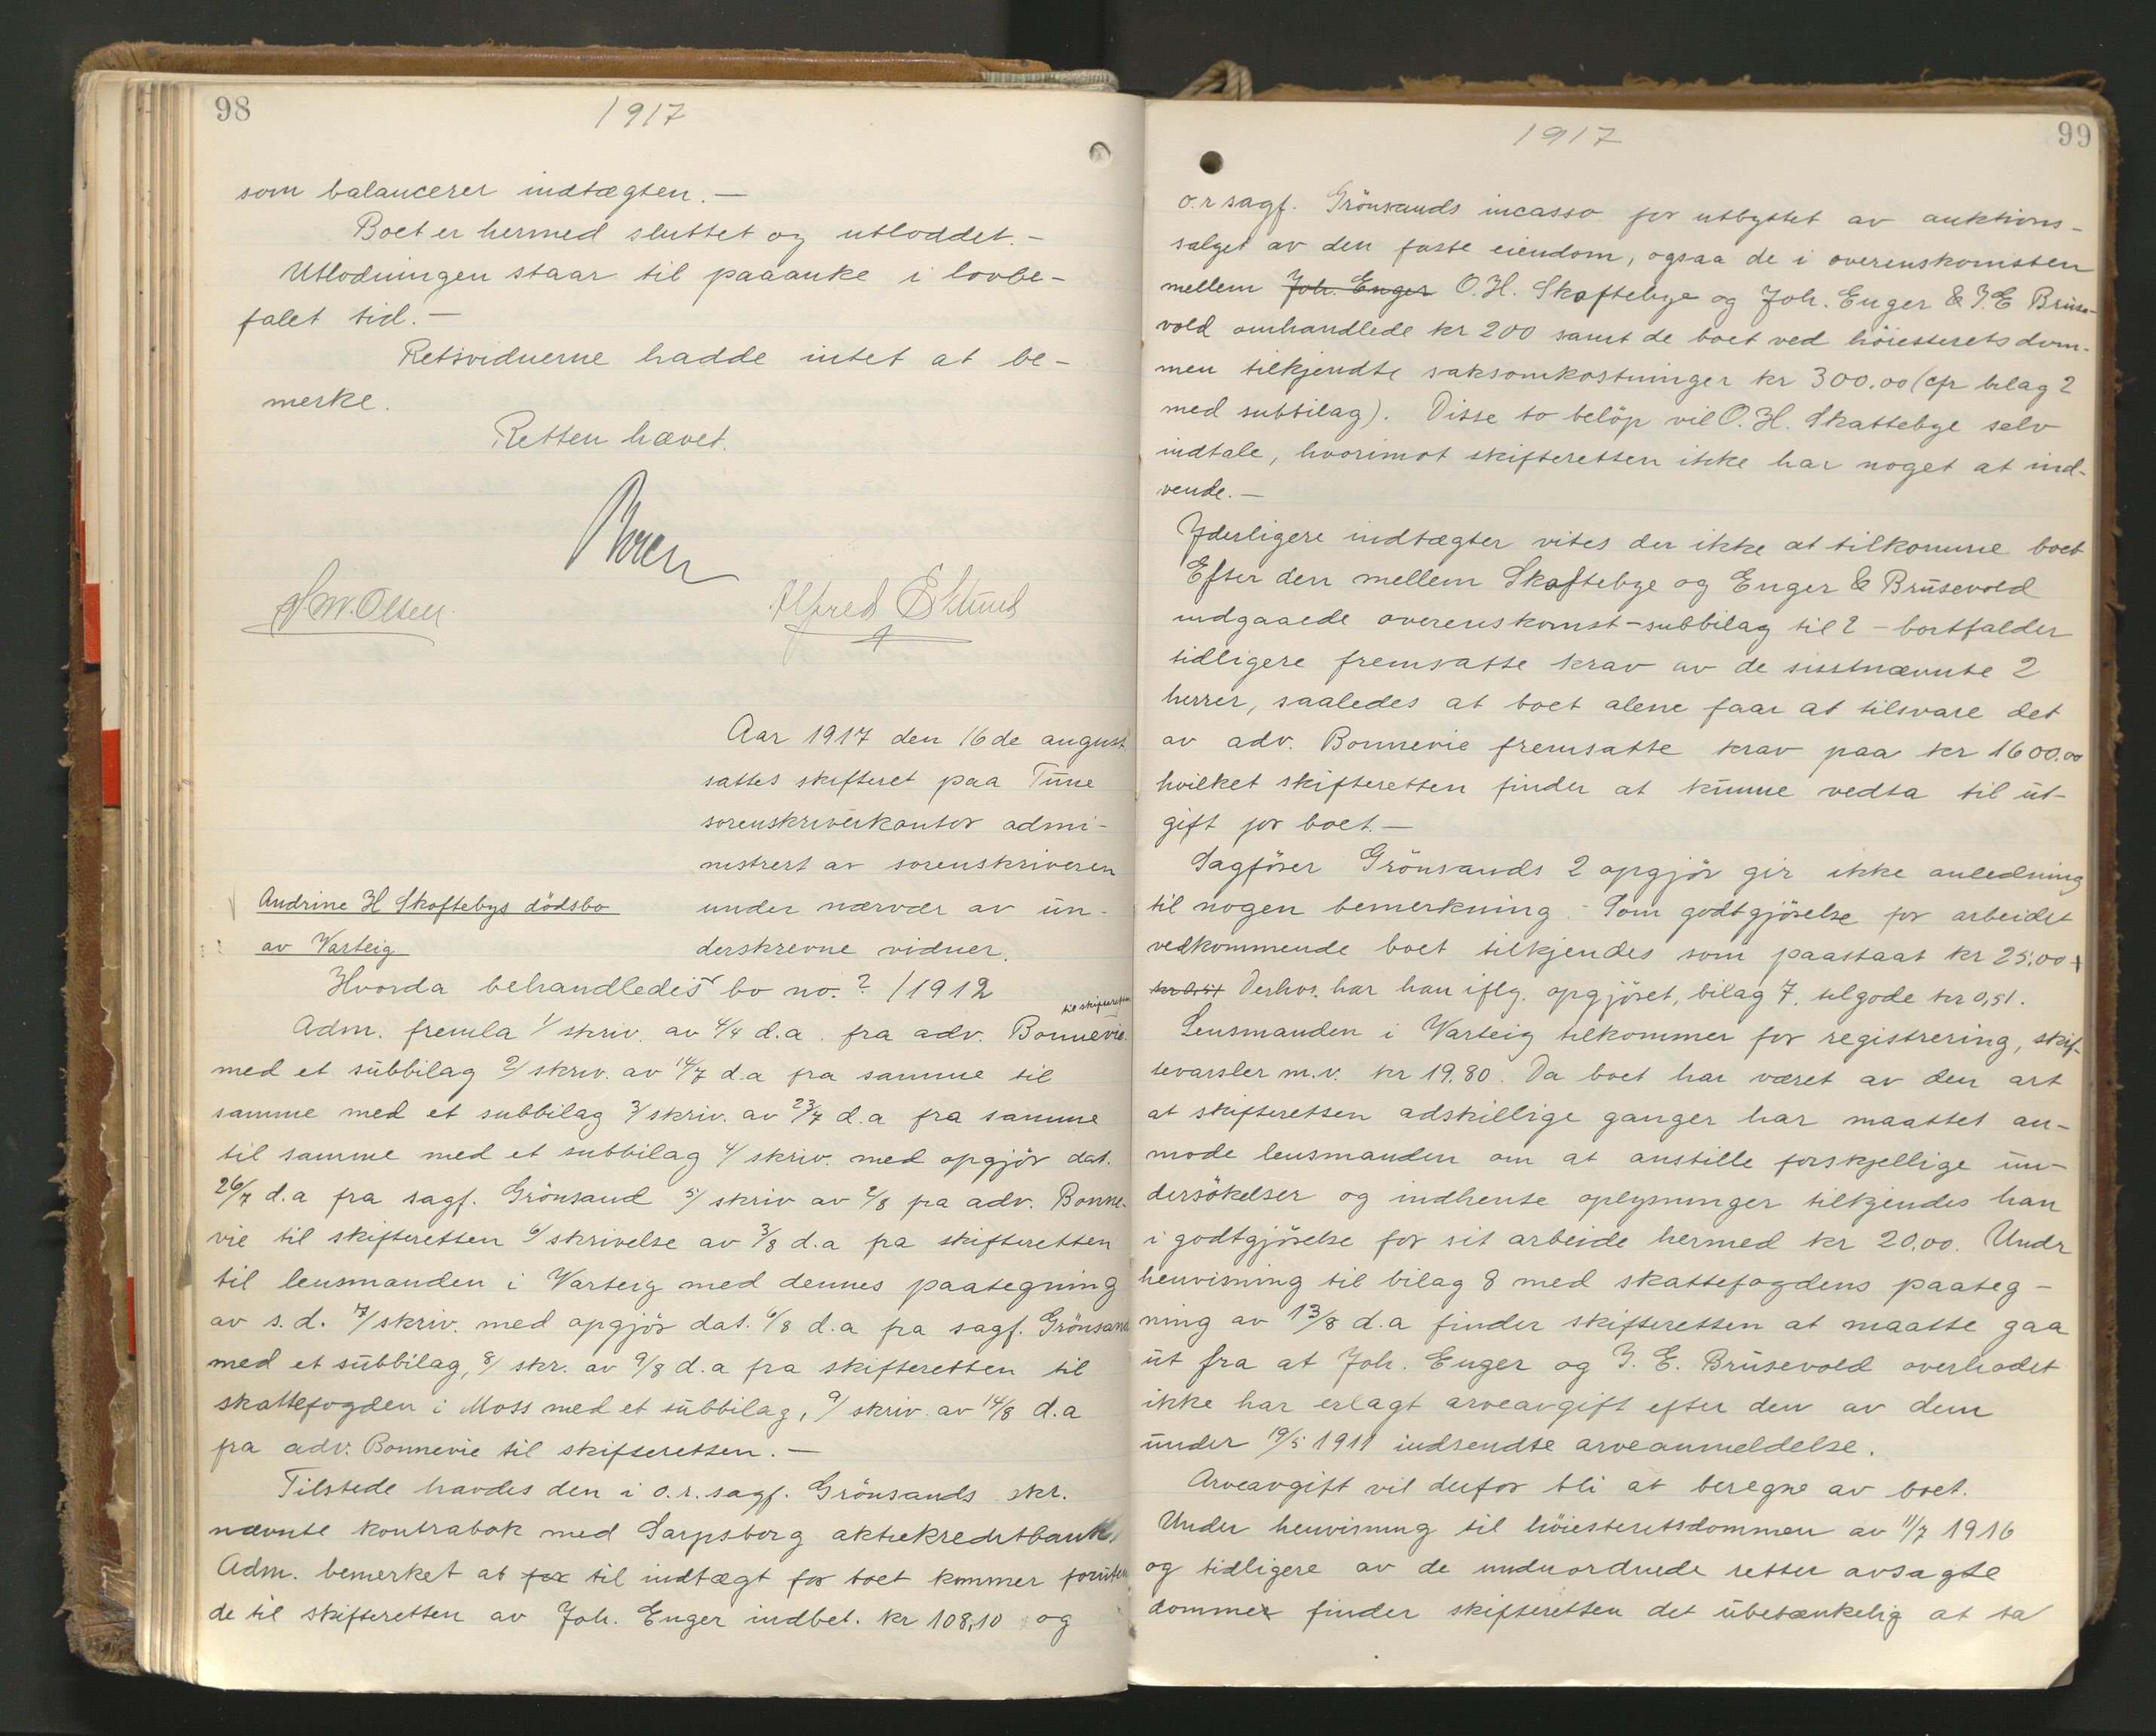 98
1917
som balancerer indtægten.—
Boet er hermed sluttet og utloddet.—
Utlodningen staar til paaanke i lovbe-
falet tid.—
Retsvidnerne hadde intet at be-
merke.
Retten hævet.
Alfred
Aar 1917 den 16de august
sattes skifteret paa Tune
sorenskriverkontor admi-
nistrert av sorenskriveren
under nærvær av un-
derskrevne vidner.
Andrine H Skoftebys dödsbo
av Varteig
Hvorda behandledes bo no. ? /1912
til skifteretten
Adm. fremla 1/ skriv. av 4/4 d.a. fra adv. Bonnevie
med et subbilag 2/ skriv. av 14/7 d.a fra samme til
samme med et subbilag 3/ skriv. av 23/7 d.a fra samme
til samme med et subbilag 4/ skriv. med opgjör dat.
26/7 d.a fra sagf. Grönsand 5/ skriv av 2/8 fra adv. Bonne-
vie til skifteretten 6/ skrivelse av 3/8 d.a fra skifteretten
til lensmanden i Varteig med dennes paategning
av s.d. 7/ skriv. med opgjör dat. 6/8 d.a fra sagf. Grönsand
med et subbilag, 8/ skr. av 9/8 d.a fra skifteretten til
skattefogden i Moss med et subbilag, 9/ skriv. av 14/8 d.a
fra adv. Bonnevie til skifteretten.—
Tilstede havdes den i o.r. sagf. Grönsands skr.
nævnte kontrabok med Sarpsborg aktiekreditbank.
Adm. bemerket at for til indtægt for boet kommer foruten
de til skifteretten av Joh. Enger indbet. kr 108,10 og
99
1917
o.r sagf. Grönsands incasso for utbyttet av auktions-
salget av den faste eiendom, ogsaa de i overenskomsten
mellem Joh. Enger O.H. Skoftebye og Joh. Enger & I.E Bruse-
vold omhandlede kr 200 samt de boet ved höiesteretsdom-
men tilkjendte saksomkostninger kr 300.00 (cfr bilag 2
med subbilag). Disse to belöp vil O.H. Skattebye selv
indtale, hvorimot skifteretten ikke har noget at ind-
vende.—
Yderligere indtægter vites der ikke at tilkomme boet
Efter den mellem Skoftebye og Enger & Brusevold
indgaaede overenskomst - subbilag til 2 - bortfalder
tidligere fremsatte krav av de sisstnævnte 2
herrer, saaledes at boet alene faar at tilsvare det
av adv. Bonnevie fremsatte krav paa kr 1600.00
hvilket skifteretten finder at kunne vedta til ut-
gift for boet.—
Sagförer Grönsands 2 opgjör gir ikke anledning
til nogen bemerkning. Som godtgjörelse for arbeidet
vedkommende boet tilkjendes som paastaat kr 25.00 +
kr 0,51 Derhos. har han iflg. opgjöret, bilag 7. tilgode kr 0,51.
Lensmanden i Varteig tilkommer for registrering, skif-
tevarsler m.v. kr 19.80. Da boet har været av den art
at skifteretten adskillige ganger har maattet an-
mode lensmanden om at anstille forskjellige un-
dersökelser og indhente oplysninger tilkjendes han
i godtgjörelse for sit arbeide hermed kr 20.00. Undr
henvisning til bilag 8 med skattefogdens paateg-
ning av 13/8 d.a finder skifteretten at maatte gaa
ut fra at Joh. Enger og I. E. Brusevold overhodet
ikke har erlagt arveavgift efter den av dem
under 19/5 1911 indsendte arveanmeldelse.
Arveavgift vil derfor bli at beregne av boet.
Under henvisning til höiesteretsdommen av 11/7 1916
og tidligere av de underordnede retter avsagte
dommer finder skifteretten det ubetænkelig at ta